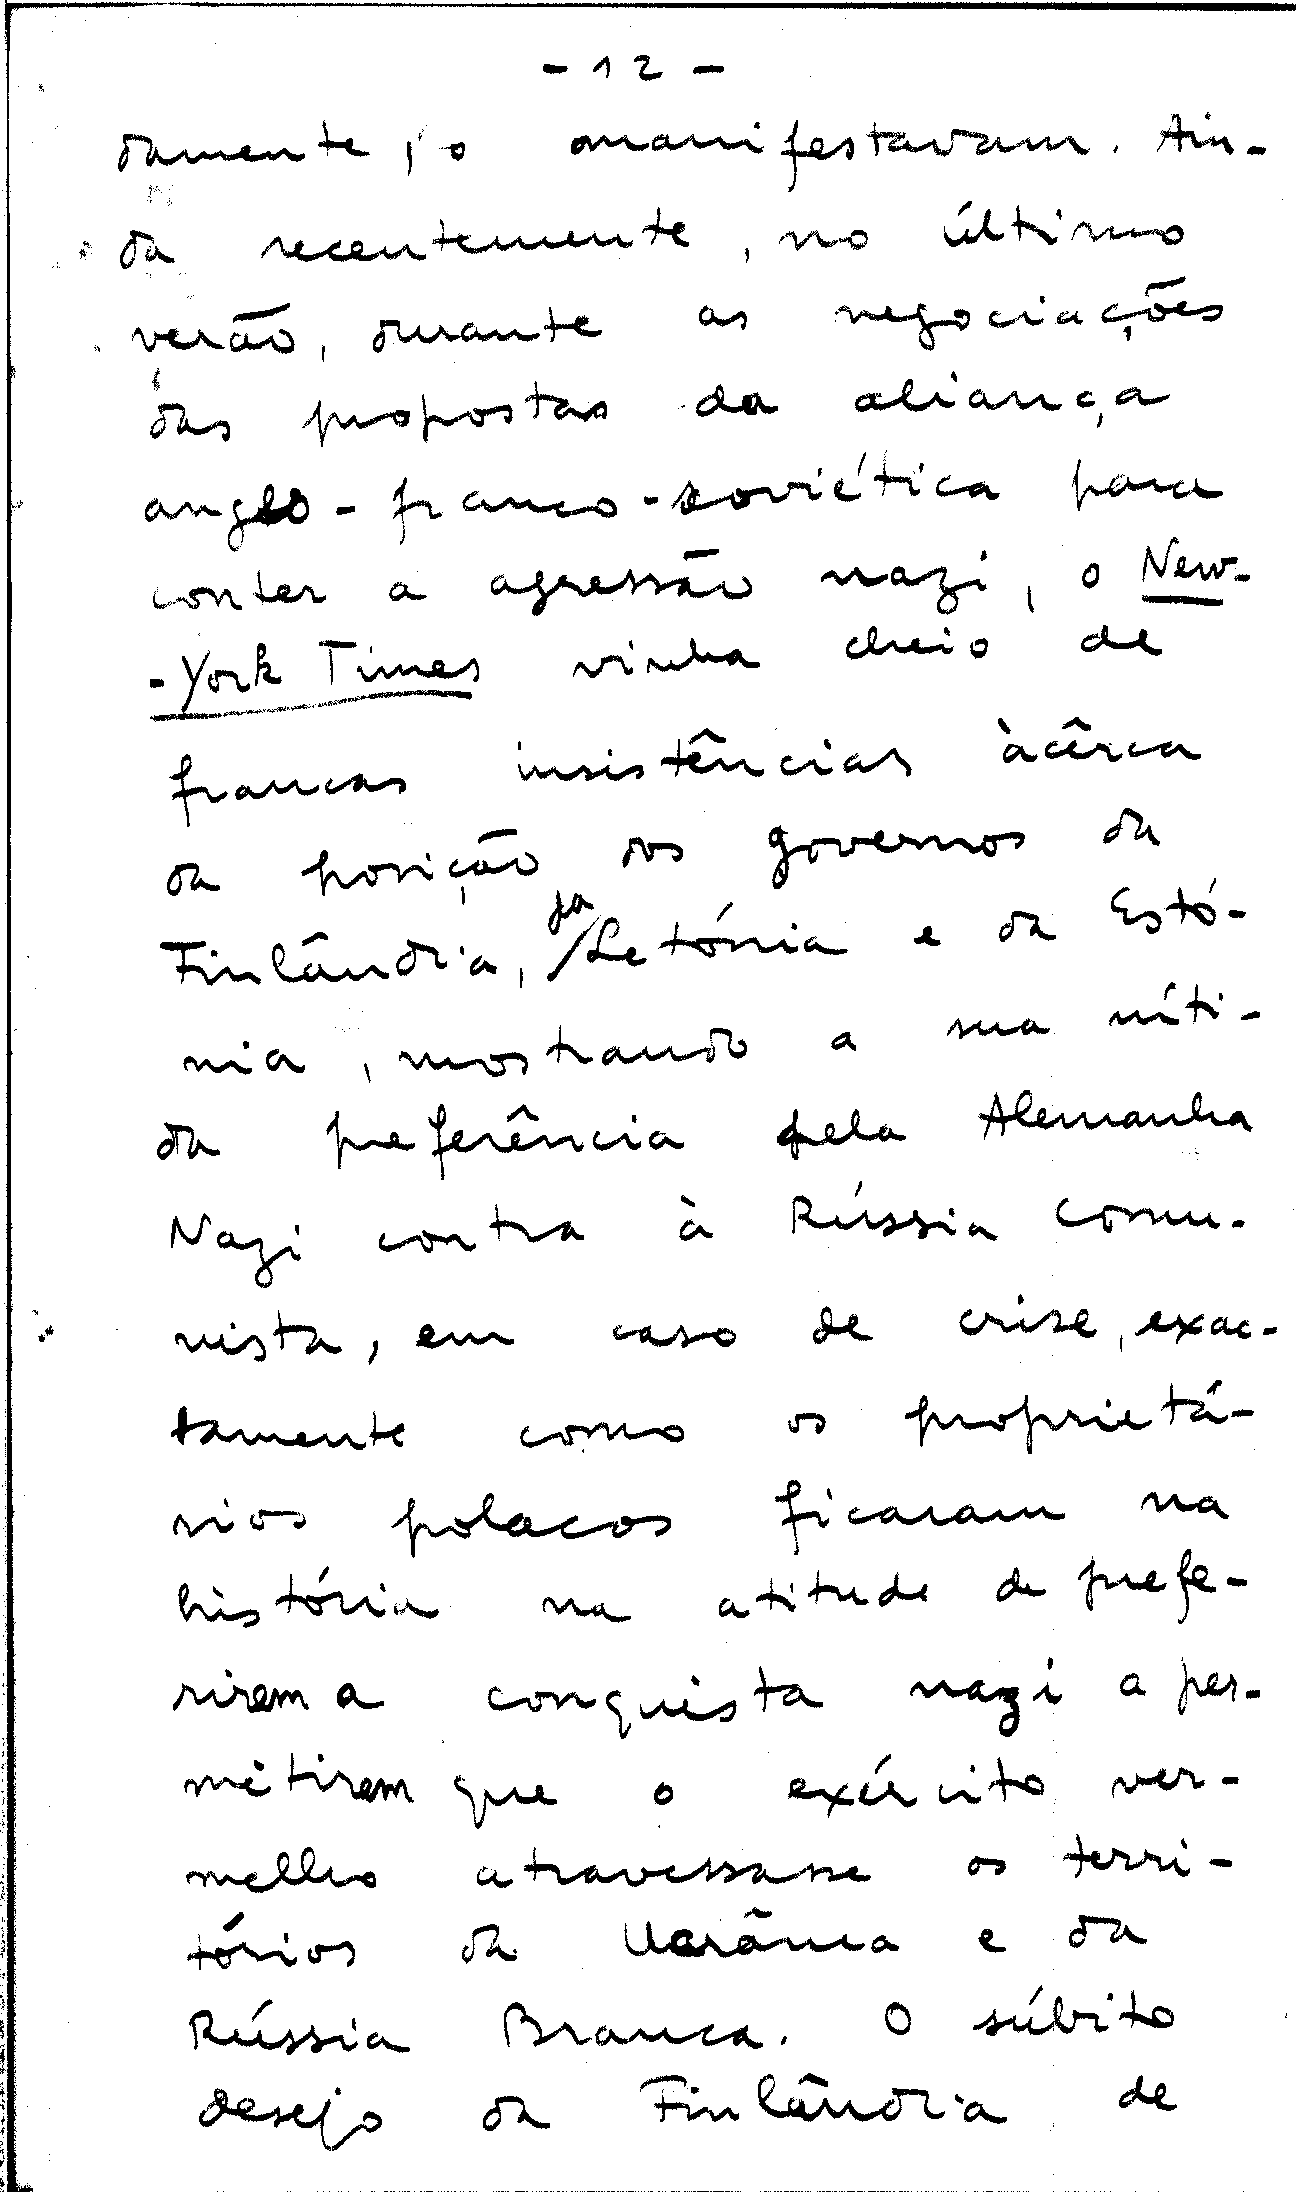 - 12 -
damente, o manifestavam. Ain-
da recentemente, no último
verão, durante as negociações
das propostas da aliança
anglo-franco-soviética para
conter a agressão nazi, o New-
-York Times vinha cheio de
francas insistências àcêrca
da posição dos governos da
Finlândia, da Letónia e da Estó-
nia, mostrando a sua níti-
da preferência pela Alemanha
Nazi contra à Rússia comu-
nista, em caso de crise, exac-
tamente como os proprietá-
rios polacos ficaram na
história na atitude de prefe-
rirem a conquista nazi a per-
mitirem que o exército ver-
melho atravessasse os terri-
tórios da Ucrânia e da
Rússia Branca. O súbito
desejo da Finlândia de